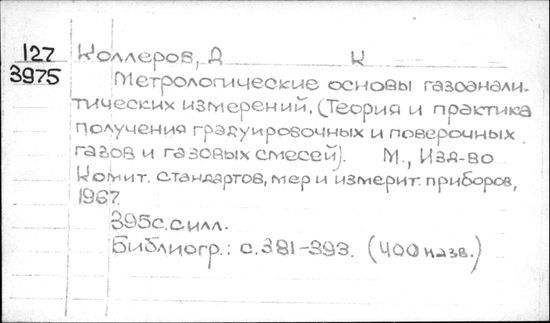 127 Коллеров, Д К
3975 Метрологические основы газоанали-
тических измерений. (Теория и практика
получения градуировочных и поверочных
газов и газовых смесей). М., Изд-во
Комит. стандартов, мер и измерит. приборов,
1967.
395с. с илл.
Библиогр.: с.381-393. (400 назв.)